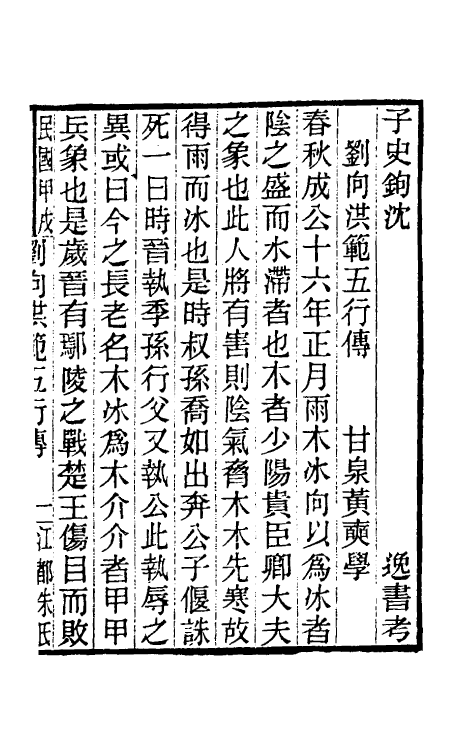 子史鉤沈　逸書考
劉向洪範五行傳　甘泉黃奭學
春秋成公十六年正月雨木冰向以爲冰者
陰之盛而水滯者也木者少陽貴臣卿大夫
之象也此人將有害則陰氣脅木木先寒故
得雨而冰也是時叔孫喬如出奔公子偃誅
死一曰時晉執季孫行父又執公此執辱之
異或曰今之長老名木冰爲木介介者甲甲
兵象也是歲晉有鄢陵之戰楚王傷目而敗
民國甲戌　劉向洪範五行傳　二　江都朱氏